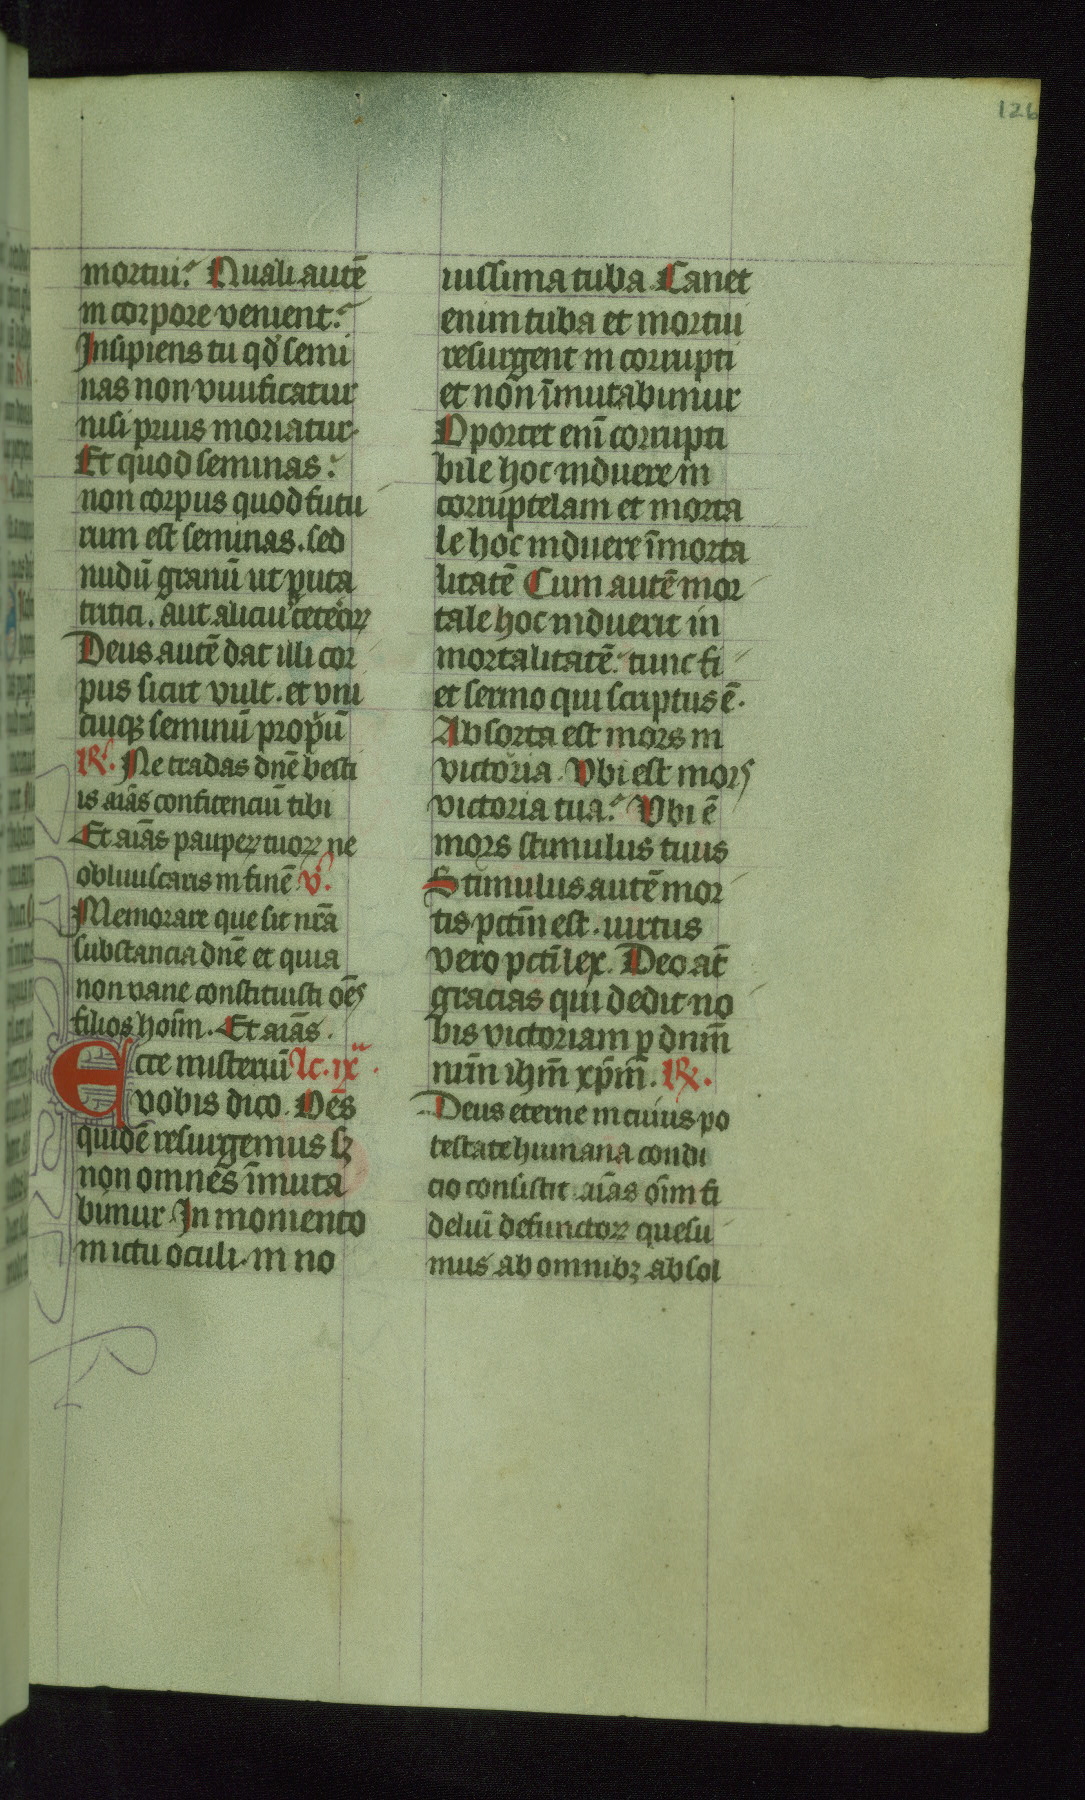 126
mortui? Quali autē
in corpore venient?
Insipiens tu qđ semi
nas non viuificatur
nisi prius moriatur.
Et quod seminas:
non corpus quod futu
rum est seminas. sed
nudū granū ut puta
tritici. aut alicuiꝰ ceteoꝝ
Deus autē dat illi cor
pus sicut vult. et vni
cuiqꝫ seminū propͥū
℟. Ne tradas dn̄e besti
is aīas confitenciū tibi
Et aīas paupeꝝ tuoꝝ ne
obliuiscaris in finē v̓.
Memorare que sit nr̄a
substancia dn̄e et quia
non vane constituisti oēs
filios hoīm. Et aīas.
Ecce misteriū lc̄. ix
vobis dico. Oēs
quidē resurgemus sꝫ
non omnēs īmuta
bimur In momento
in ictu oculi. in no
uissima tuba Canet
enim tuba et mortui
resurgent in corrupti
et non īmutabimur
Oportet enī corrupti
bile hoc induere in
corruptelam et morta
le hoc induere īmorta
litatē Cum autē mor
tale hoc induerit in
mortalitatē: tunc fi
et sermo qui scriptus ē.
Absorta est mors in
victoria. Vbi est mors
victoria tua? Vbi ē
mors stimulus tuus
Stimulus autē mor
tis pctīn est. uirtus
vero pctī lex. Deo at̄
gracias qui dedit no
bis victoriam ꝑ dnm̄
nrm̄ ihm̄ xp̄m̄. ℟.
Deus eterne in cuius po
testate humana condi
cio consistit aīas oīm fi
deliū defunctoꝝ quesu
mus ab omnibꝫ absol